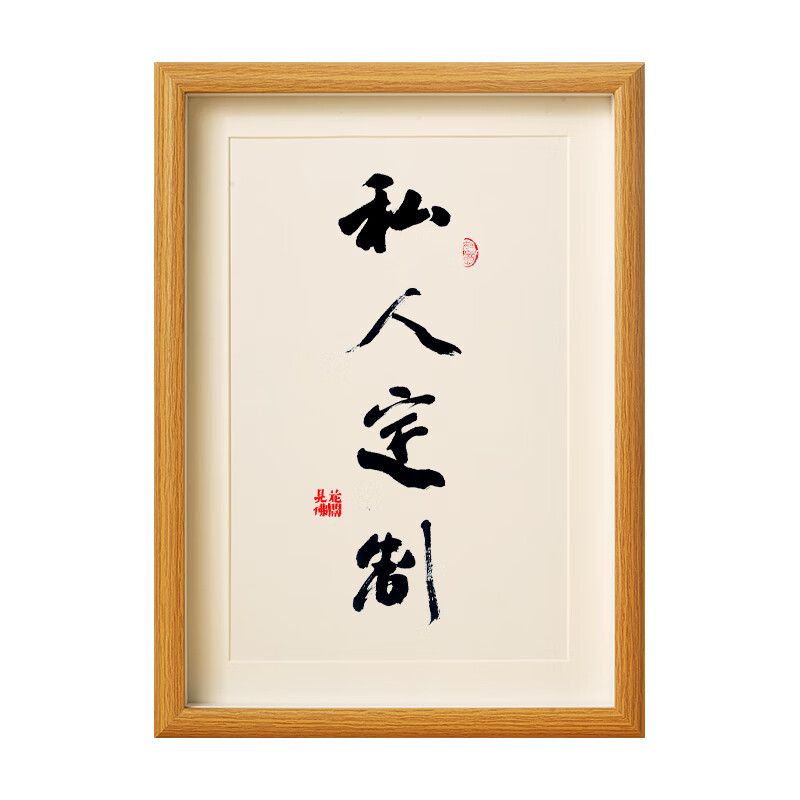 私人定制
花開見佛